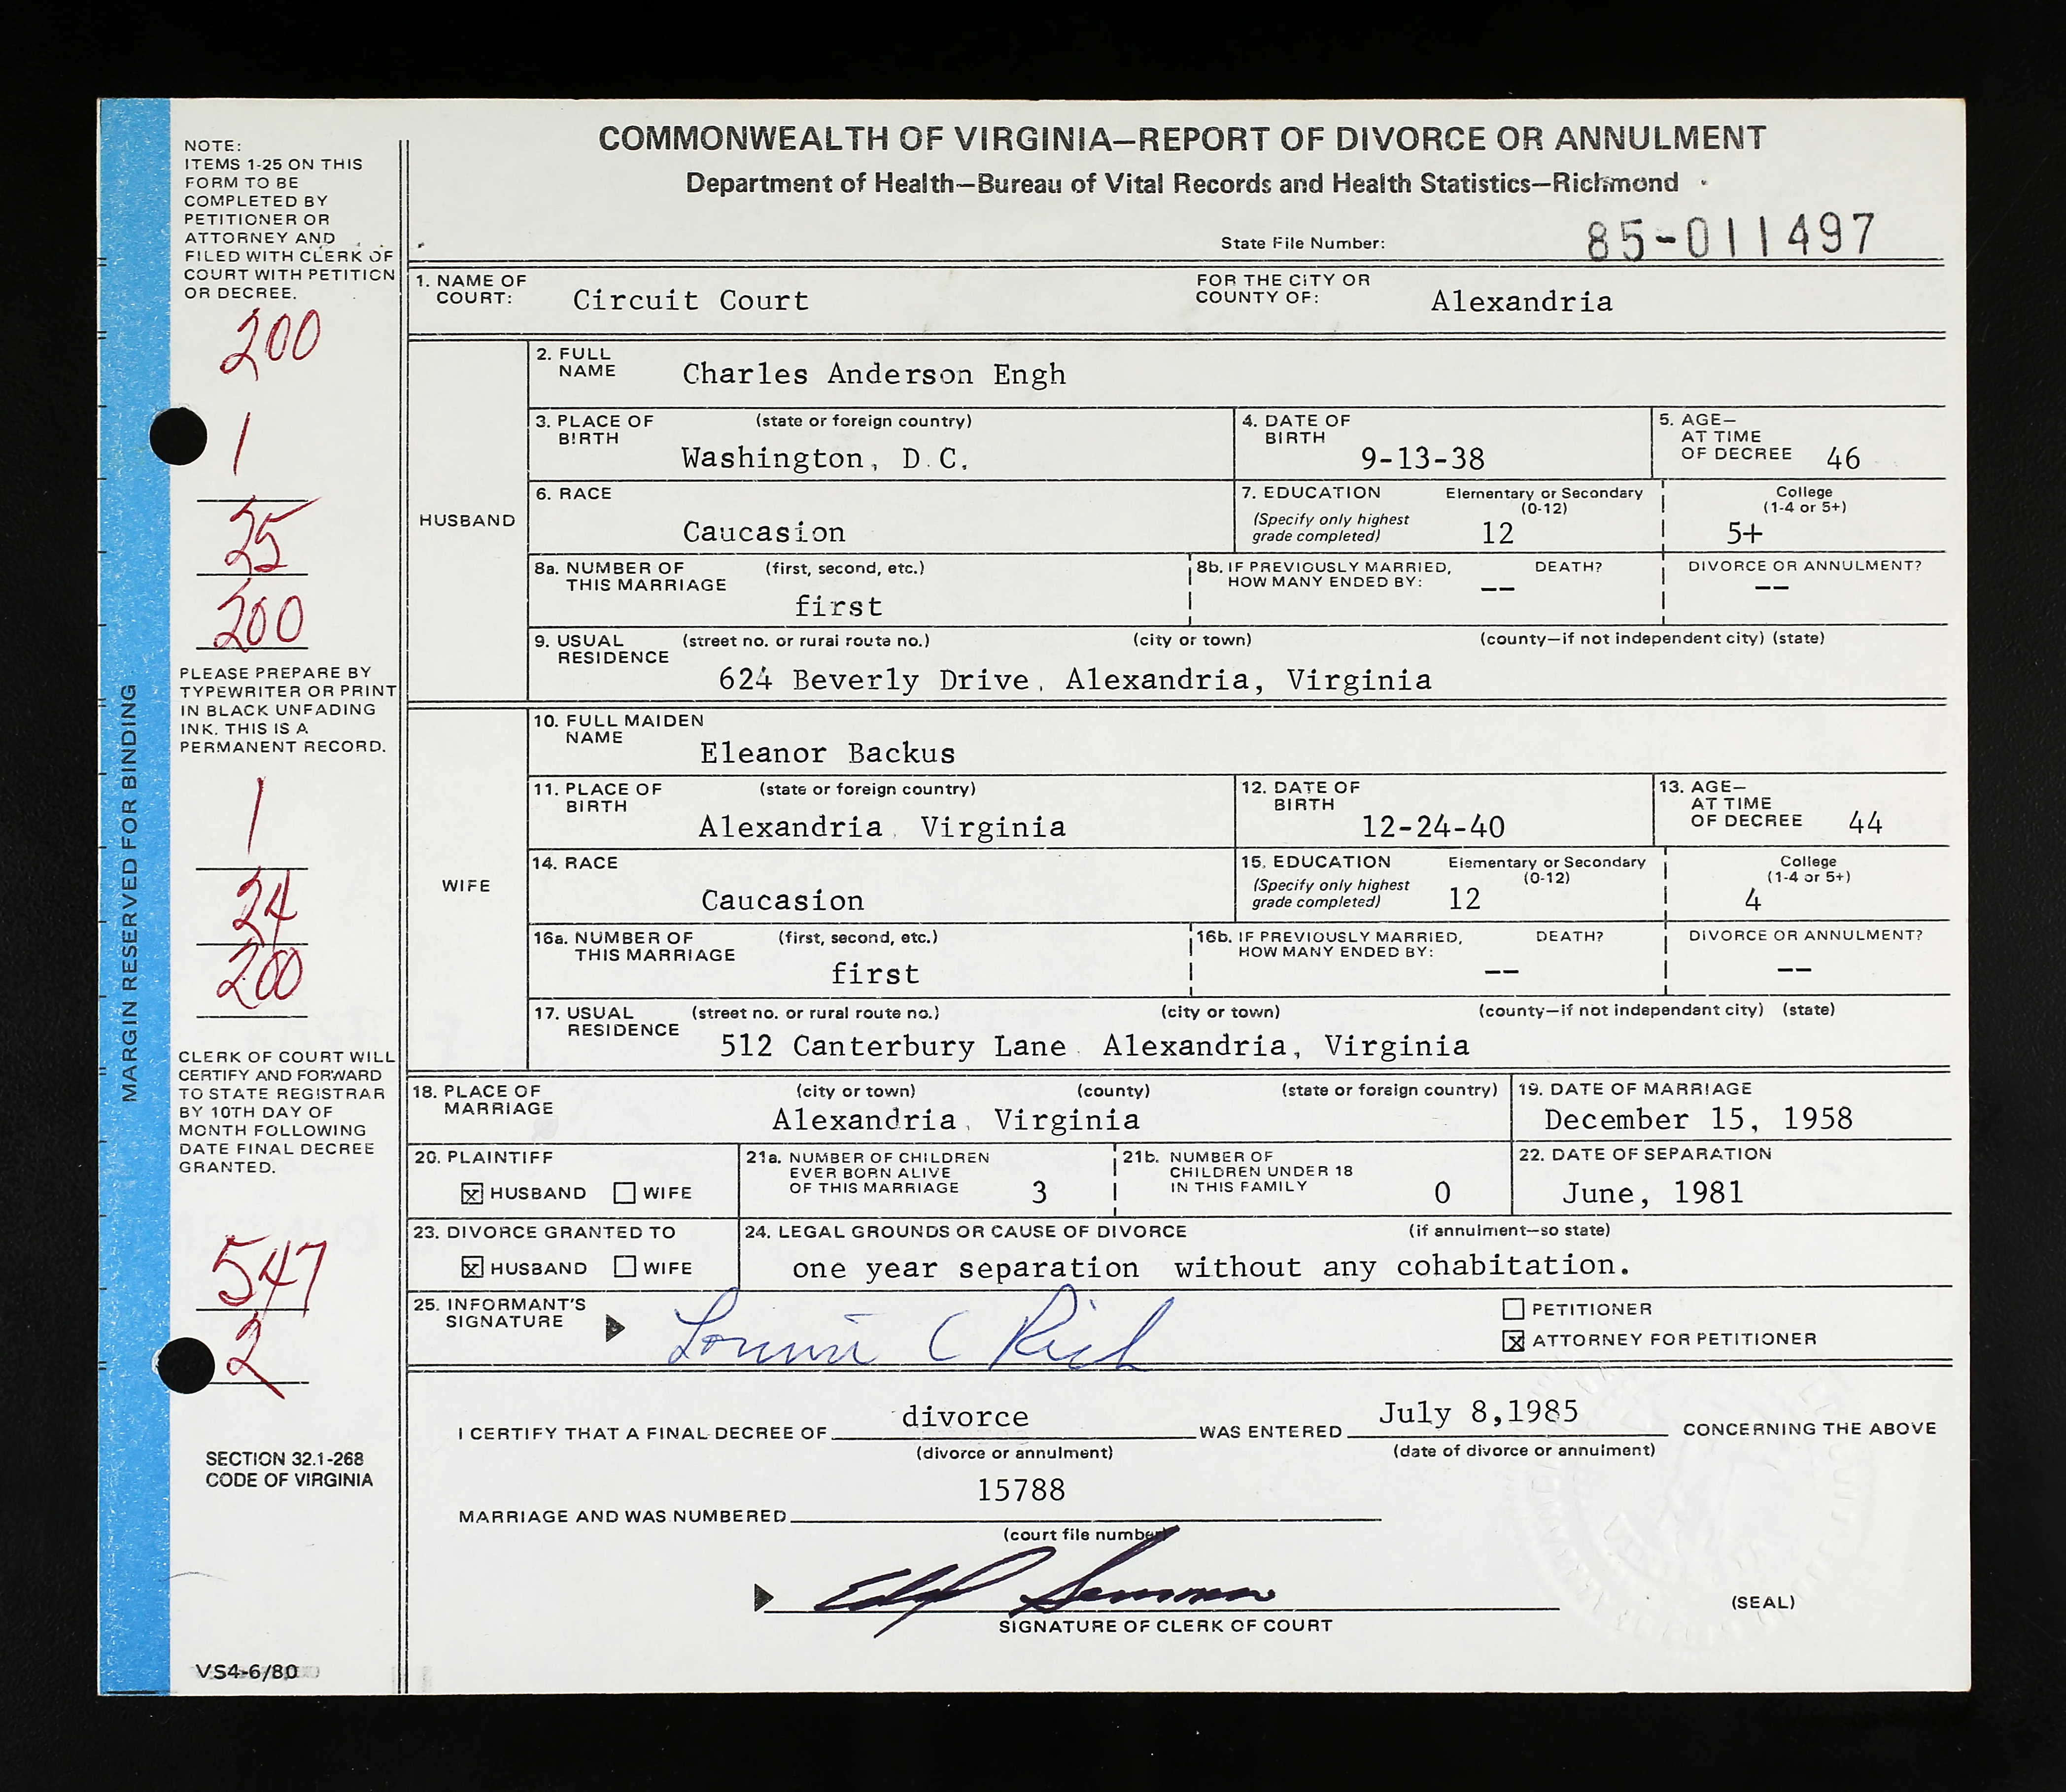 COMMONWEALTH OF VIRGINIA—REPORT OF DIVORCE OR ANNULMENT
Department of Health—Bureau of Vital Records and Health Statistics—Richmond
State File Number: 85-011497
NOTE:
ITEMS 1-25 ON THIS
FORM TO BE
COMPLETED BY
PETITIONER OR
ATTORNEY AND
FILED WITH CLERK OF
COURT WITH PETITION
OR DECREE.
200
1
25
200
PLEASE PREPARE BY
TYPEWRITER OR PRINT
IN BLACK UNFADING
INK. THIS IS A
PERMANENT RECORD.
1
24
200
CLERK OF COURT WILL
CERTIFY AND FORWARD
TO STATE REGISTRAR
BY 10TH DAY OF
MONTH FOLLOWING
DATE FINAL DECREE
GRANTED.
547
2
SECTION 32.1-268
CODE OF VIRGINIA
VS4-6/80
MARGIN RESERVED FOR BINDING
1. NAME OF COURT: Circuit Court FOR THE CITY OR COUNTY OF: Alexandria
HUSBAND
2. FULL NAME Charles Anderson Engh
3. PLACE OF BIRTH (state or foreign country) Washington, D.C.
4. DATE OF BIRTH 9-13-38
5. AGE—AT TIME OF DECREE 46
6. RACE Caucasion
7. EDUCATION (Specify only highest grade completed) Elementary or Secondary (0-12) 12 College (1-4 or 5+) 5+
8a. NUMBER OF THIS MARRIAGE (first, second, etc.) first
8b. IF PREVIOUSLY MARRIED, HOW MANY ENDED BY: DEATH? -- DIVORCE OR ANNULMENT? --
9. USUAL RESIDENCE (street no. or rural route no.) (city or town) (county—if not independent city) (state)
624 Beverly Drive, Alexandria, Virginia
WIFE
10. FULL MAIDEN NAME Eleanor Backus
11. PLACE OF BIRTH (state or foreign country) Alexandria, Virginia
12. DATE OF BIRTH 12-24-40
13. AGE—AT TIME OF DECREE 44
14. RACE Caucasion
15. EDUCATION (Specify only highest grade completed) Elementary or Secondary (0-12) 12 College (1-4 or 5+) 4
16a. NUMBER OF THIS MARRIAGE (first, second, etc.) first
16b. IF PREVIOUSLY MARRIED, HOW MANY ENDED BY: DEATH? -- DIVORCE OR ANNULMENT? --
17. USUAL RESIDENCE (street no. or rural route no.) (city or town) (county—if not independent city) (state)
512 Canterbury Lane, Alexandria, Virginia
18. PLACE OF MARRIAGE (city or town) (county) (state or foreign country) Alexandria, Virginia
19. DATE OF MARRIAGE December 15, 1958
20. PLAINTIFF x HUSBAND WIFE
21a. NUMBER OF CHILDREN EVER BORN ALIVE OF THIS MARRIAGE 3
21b. NUMBER OF CHILDREN UNDER 18 IN THIS FAMILY 0
22. DATE OF SEPARATION June, 1981
23. DIVORCE GRANTED TO x HUSBAND WIFE
24. LEGAL GROUNDS OR CAUSE OF DIVORCE (if annulment—so state)
one year separation without any cohabitation.
25. INFORMANT'S SIGNATURE Lonnie C Rich
PETITIONER
x ATTORNEY FOR PETITIONER
I CERTIFY THAT A FINAL DECREE OF divorce WAS ENTERED July 8,1985 CONCERNING THE ABOVE
(divorce or annulment) (date of divorce or annulment)
MARRIAGE AND WAS NUMBERED 15788
(court file number)
SIGNATURE OF CLERK OF COURT
(SEAL)